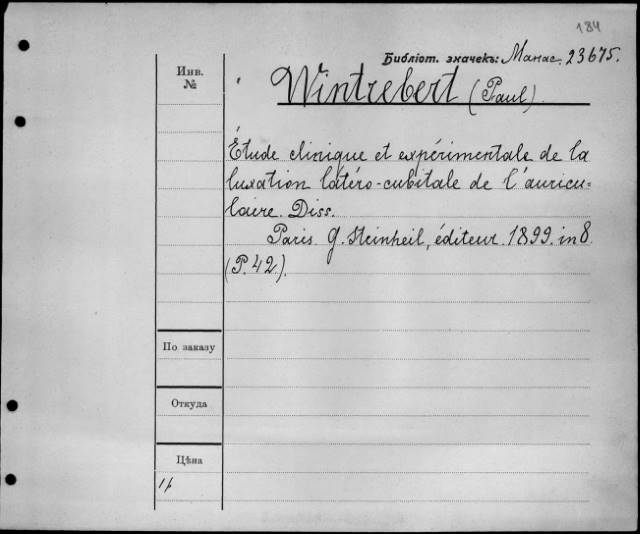 184
Библіот. значекъ: Манас. 23675.
Инв.
№
Wintrebert (Paul).
Étude clinique et expérimentale de la
luxation latéro-cubitale de l'auricu=
laire. Diss.
Paris. G. Steinheil, éditeur. 1899. in 8.
(P. 42.).
По заказу
Откуда
Цѣна